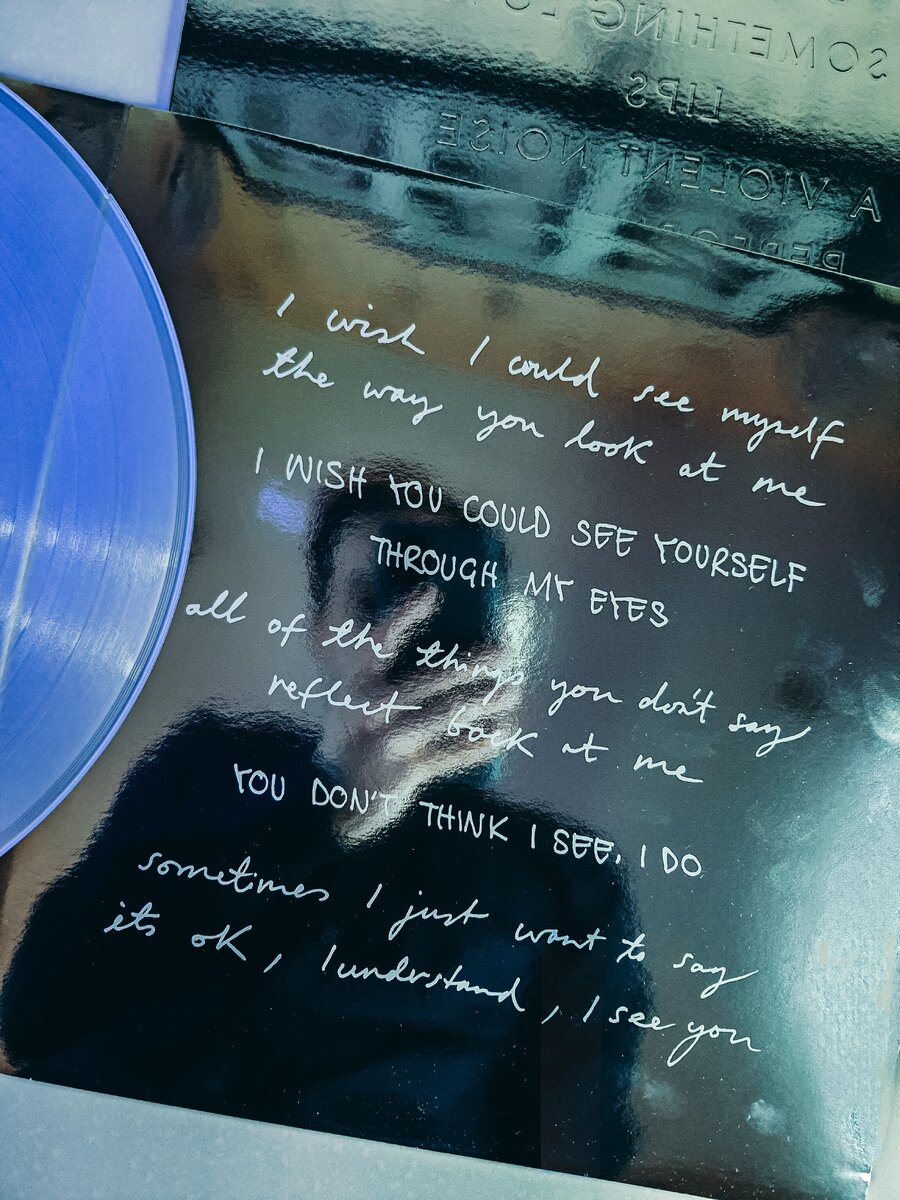 SOMETHING
LIPS
A VIOLENT NOISE
I wish I could see myself
the way you look at me
I WISH YOU COULD SEE YOURSELF
THROUGH MY EYES
all of the things you don't say
reflect back at me
YOU DON'T THINK I SEE. I DO
sometimes I just want to say
its ok, I understand, I see you